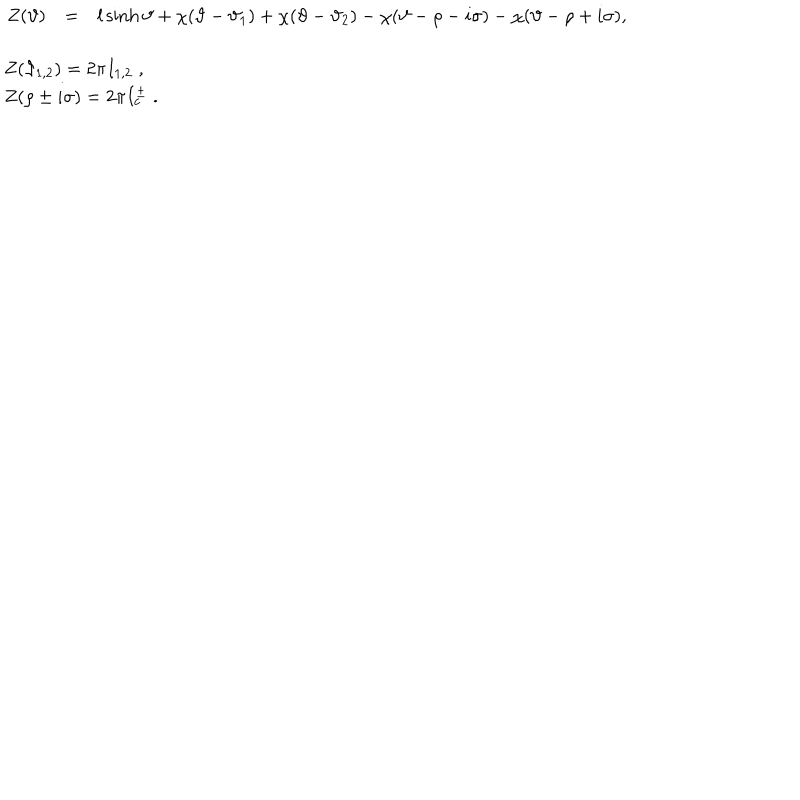 Z(ϑ) = l sinh ϑ + χ(ϑ − ϑ₁) + χ(ϑ − ϑ₂) − χ(ϑ − ρ − iσ) − χ(ϑ − ρ + iσ),
Z(ϑ₁,₂) = 2πI₁,₂ ,
Z(ρ ± iσ) = 2πI_c^± .